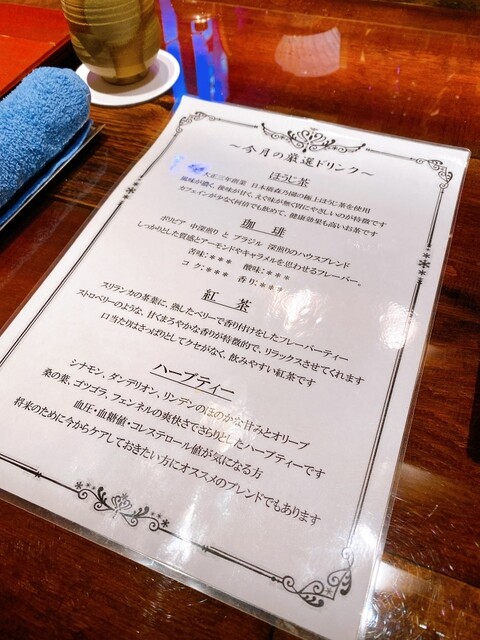 ～今月の厳選ドリンク～
ほうじ茶
大正三年創業 日本橋森乃園の極上ほうじ茶を使用
風味が濃く、後味が甘く、えぐ味が無く胃にやさしいのが特徴です
カフェインが少なく何倍でも飲めて、健康効果も高いお茶です
珈 琲
ボリビア 中深煎り と ブラジル 深煎りのハウスブレンド
しっかりとした質感とアーモンドやキャラメルを思わせるフレーバー。
苦味：＊＊＊ 酸味：＊＊＊
コク：＊＊＊ 香り：＊＊＊
紅 茶
スリランカの茶葉に、熟したベリーで香り付けをしたフレーバーティー
ストロベリーのような、甘くまろやかな香りが特徴的で、リラックスさせてくれます
口当たりはさっぱりとしてクセがなく、飲みやすい紅茶です
ハーブティー
シナモン、ダンデリオン、リンデンのほのかな甘みとオリーブ
桑の葉、ゴツゴラ、フェンネルの爽快さでさらりとしたハーブティーです
血圧・血糖値・コレステロール値が気になる方
将来のために今からケアしておきたい方にオススメのブレンドでもあります